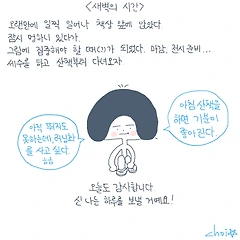 <새벽의 시간>
오랜만에 일찍 일어나 책상 앞에 앉았다
잠시 멍하니 있다가.
그림에 집중해야 할 때(!)가 되었다. 마감, 전시 준비...
세수를 하고 산책부터 다녀오자
아침 산책을
하면 기분이
좋아진다.
아직 뛰지도
못하는데, 러닝화
를 사고 싶다.
ㅎㅎ
오늘도 감사합니다
신나는 하루를 보낼 거예요!
choi